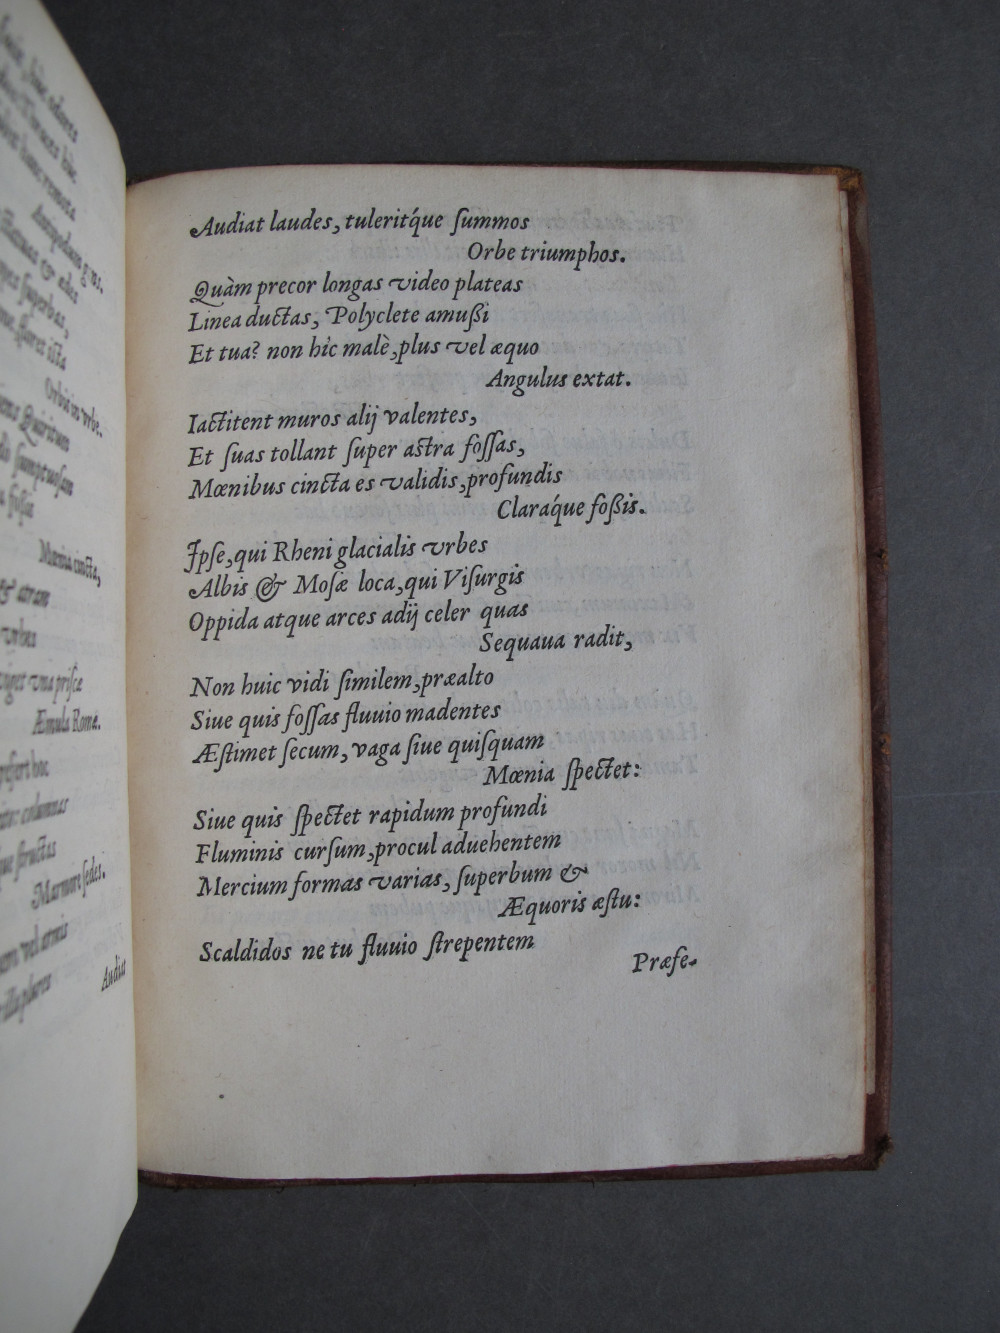 Audiat laudes, tulerit́que ſummos
Orbe triumphos.
Quàm precor longas video plateas
Linea ductas, Polyclete amußi
Et tua? non hìc malè, plus vel æquo
Angulus extat.
Iactitent muros alij valentes,
Et ſuas tollant ſuper astra foſſas,
Mœnibus cincta es validis, profundis
Claraq́ue foßis.
Ipſe, qui Rheni glacialis vrbes
Albis & Moſæ loca, qui Viſurgis
Oppida atque arces adij celer quas
Sequaua radit,
Non huic vidi ſimilem, præalto
Siue quis foſſas fluuio madentes
Æstimet ſecum, vaga ſiue quiſquam
Mœnia ſpectet:
Siue quis ſpectet rapidum profundi
Fluminis curſum, procul aduehentem
Mercium formas varias, ſuperbum &
Æquoris æstu:
Scaldidos ne tu fluuio strepentem
Præfe-
Antipodum
Orbis in vrbe.
Mœnia cincta,
& aram
vrbes
viget vna priſcæ
Æmula Romæ.
prefert hoc
columnas
Marmore ſedes.
vel armis
Audiat